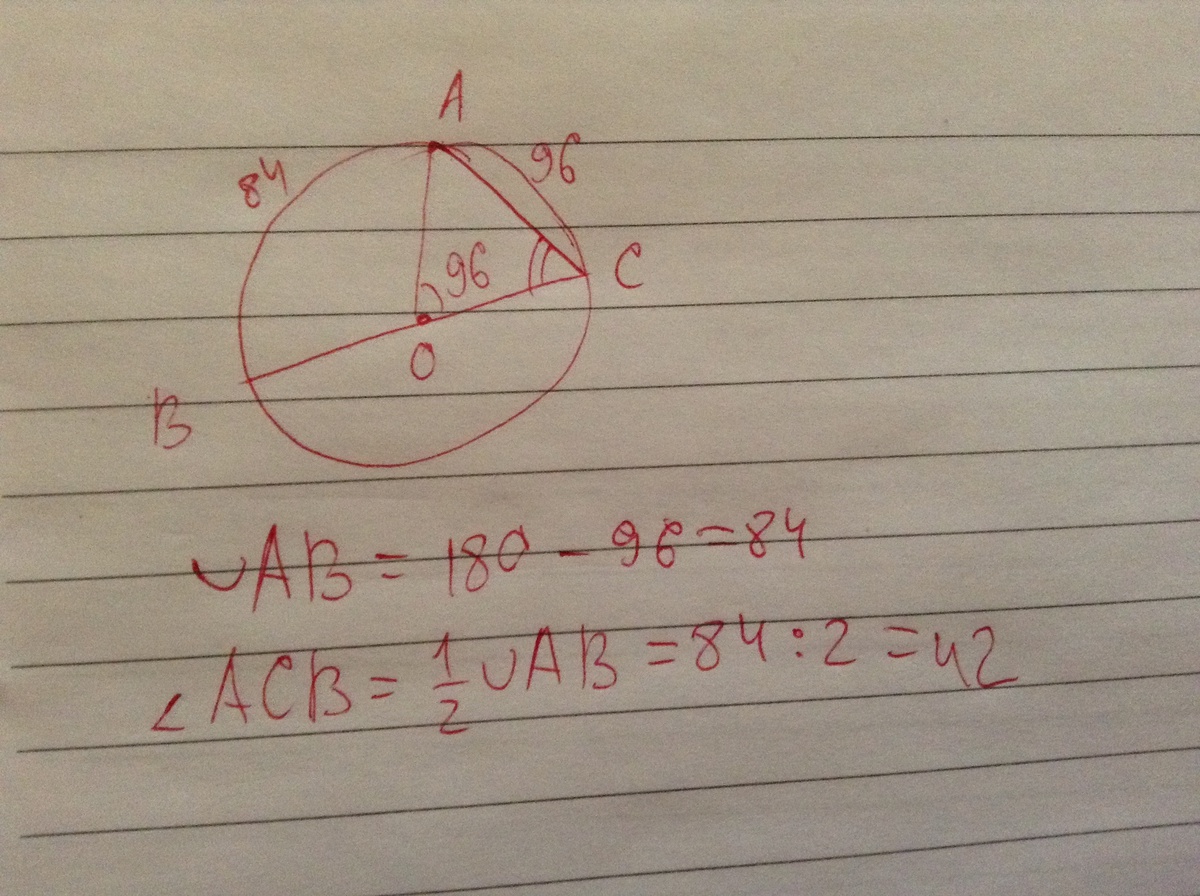 A
84
96
96
C
O
B
◡AB = 180 - 96 = 84
∠ACB = 1/2 ◡AB = 84 : 2 = 42